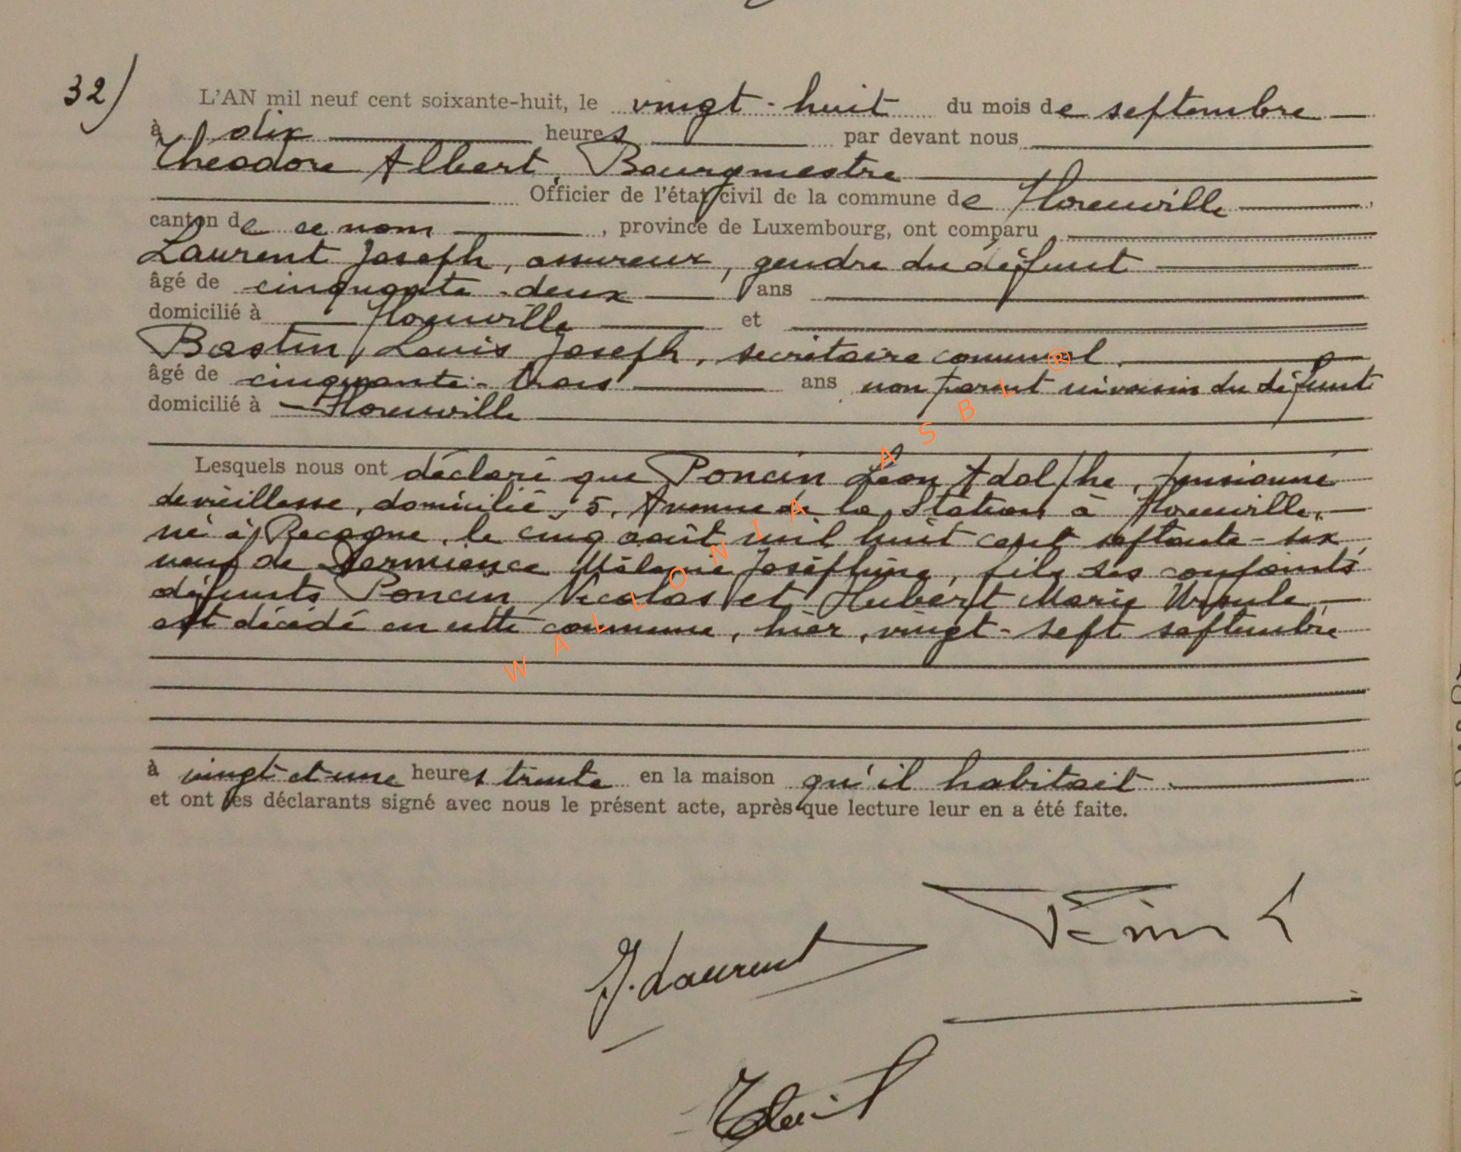 32)
L'AN mil neuf cent soixante-huit, le vingt-huit du mois de septembre
à dix heures par devant nous
Théodore Albert, Bourgmestre
Officier de l'état civil de la commune de Florenville
canton de ce nom, province de Luxembourg, ont comparu
Laurent Joseph, assureur, gendre du défunt
âgé de cinquante-deux ans
domicilié à Florenville et
Bastin Louis Joseph, secrétaire communal
âgé de cinquante-trois ans non parent ni voisin du défunt
domicilié à Florenville
Lesquels nous ont déclaré que Poncin Léon Adolphe, pensionné
de vieillesse, domicilié, 5, Avenue de la Station à Florenville,
né à Recogne, le cinq août mil huit cent septante-six
veuf de Mélanie Joséphine, fils des conjoints
défunts Poncin Nicolas et Hubert Marie Ursule
est décédé en cette commune, hier, vingt-sept septembre
à vingt-et-une heures trente en la maison qu'il habitait.
et ont les déclarants signé avec nous le présent acte, après que lecture leur en a été faite.
J. Laurent
WALLONIA ASBL ®